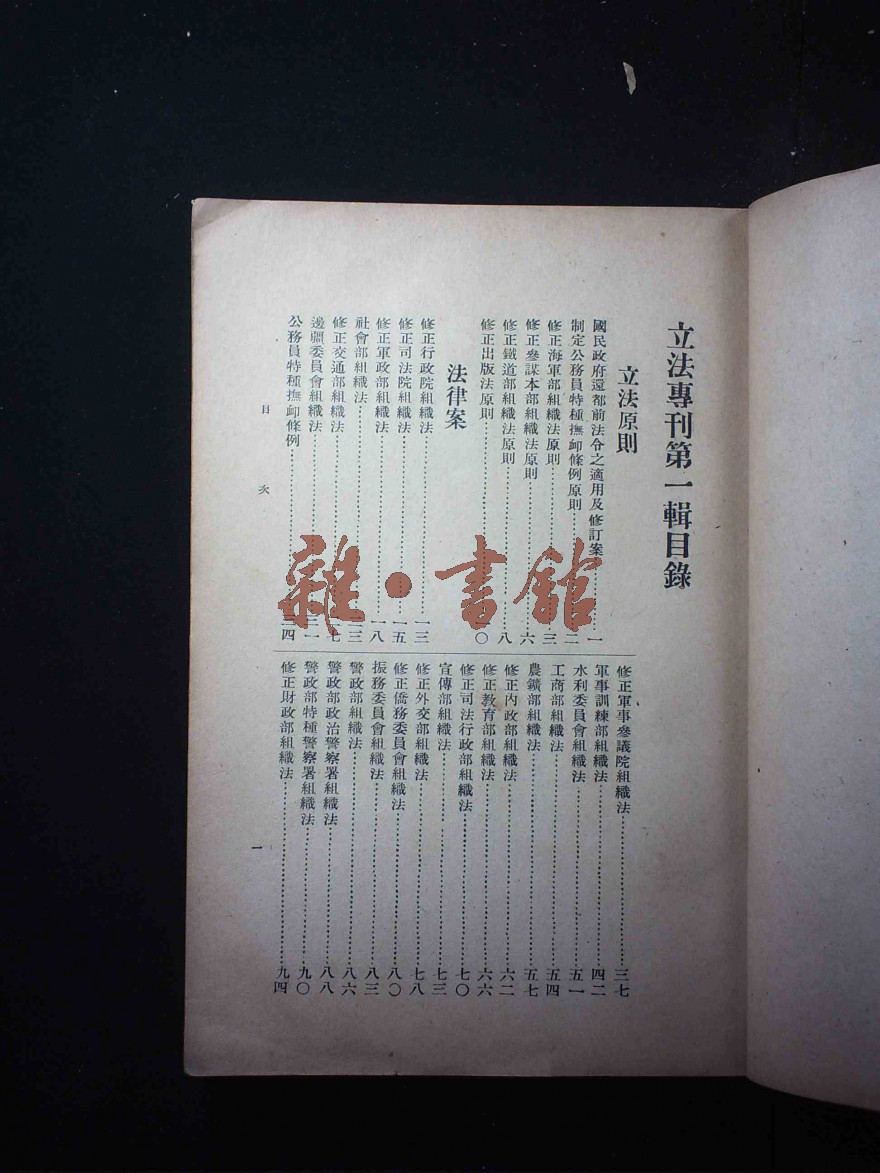 立法專刊第一輯目錄
立法原則
國民政府還都前法令之適用及修訂案……一
制定公務員特種撫卹條例原則……二
修正海軍部組織法原則……三
修正參謀本部組織法原則……六
修正鐵道部組織法原則……八
修正出版法原則……〇
法律案
修正行政院組織法……一三
修正司法院組織法……一五
修正軍政部組織法……一八
社會部組織法……二三
修正交通部組織法……二七
邊疆委員會組織法……三一
公務員特種撫卹條例……三四
修正軍事參議院組織法……三七
軍事訓練部組織法……四二
水利委員會組織法……五一
工商部組織法……五四
農鑛部組織法……五七
修正內政部組織法……六二
修正教育部組織法……六六
修正司法行政部組織法……七〇
宣傳部組織法……七三
修正外交部組織法……七八
修正僑務委員會組織法……八〇
振務委員會組織法……八三
警政部組織法……八六
警政部政治警察署組織法……八八
警政部特種警察署組織法……九〇
修正財政部組織法……九四
目次
一
雜·書館